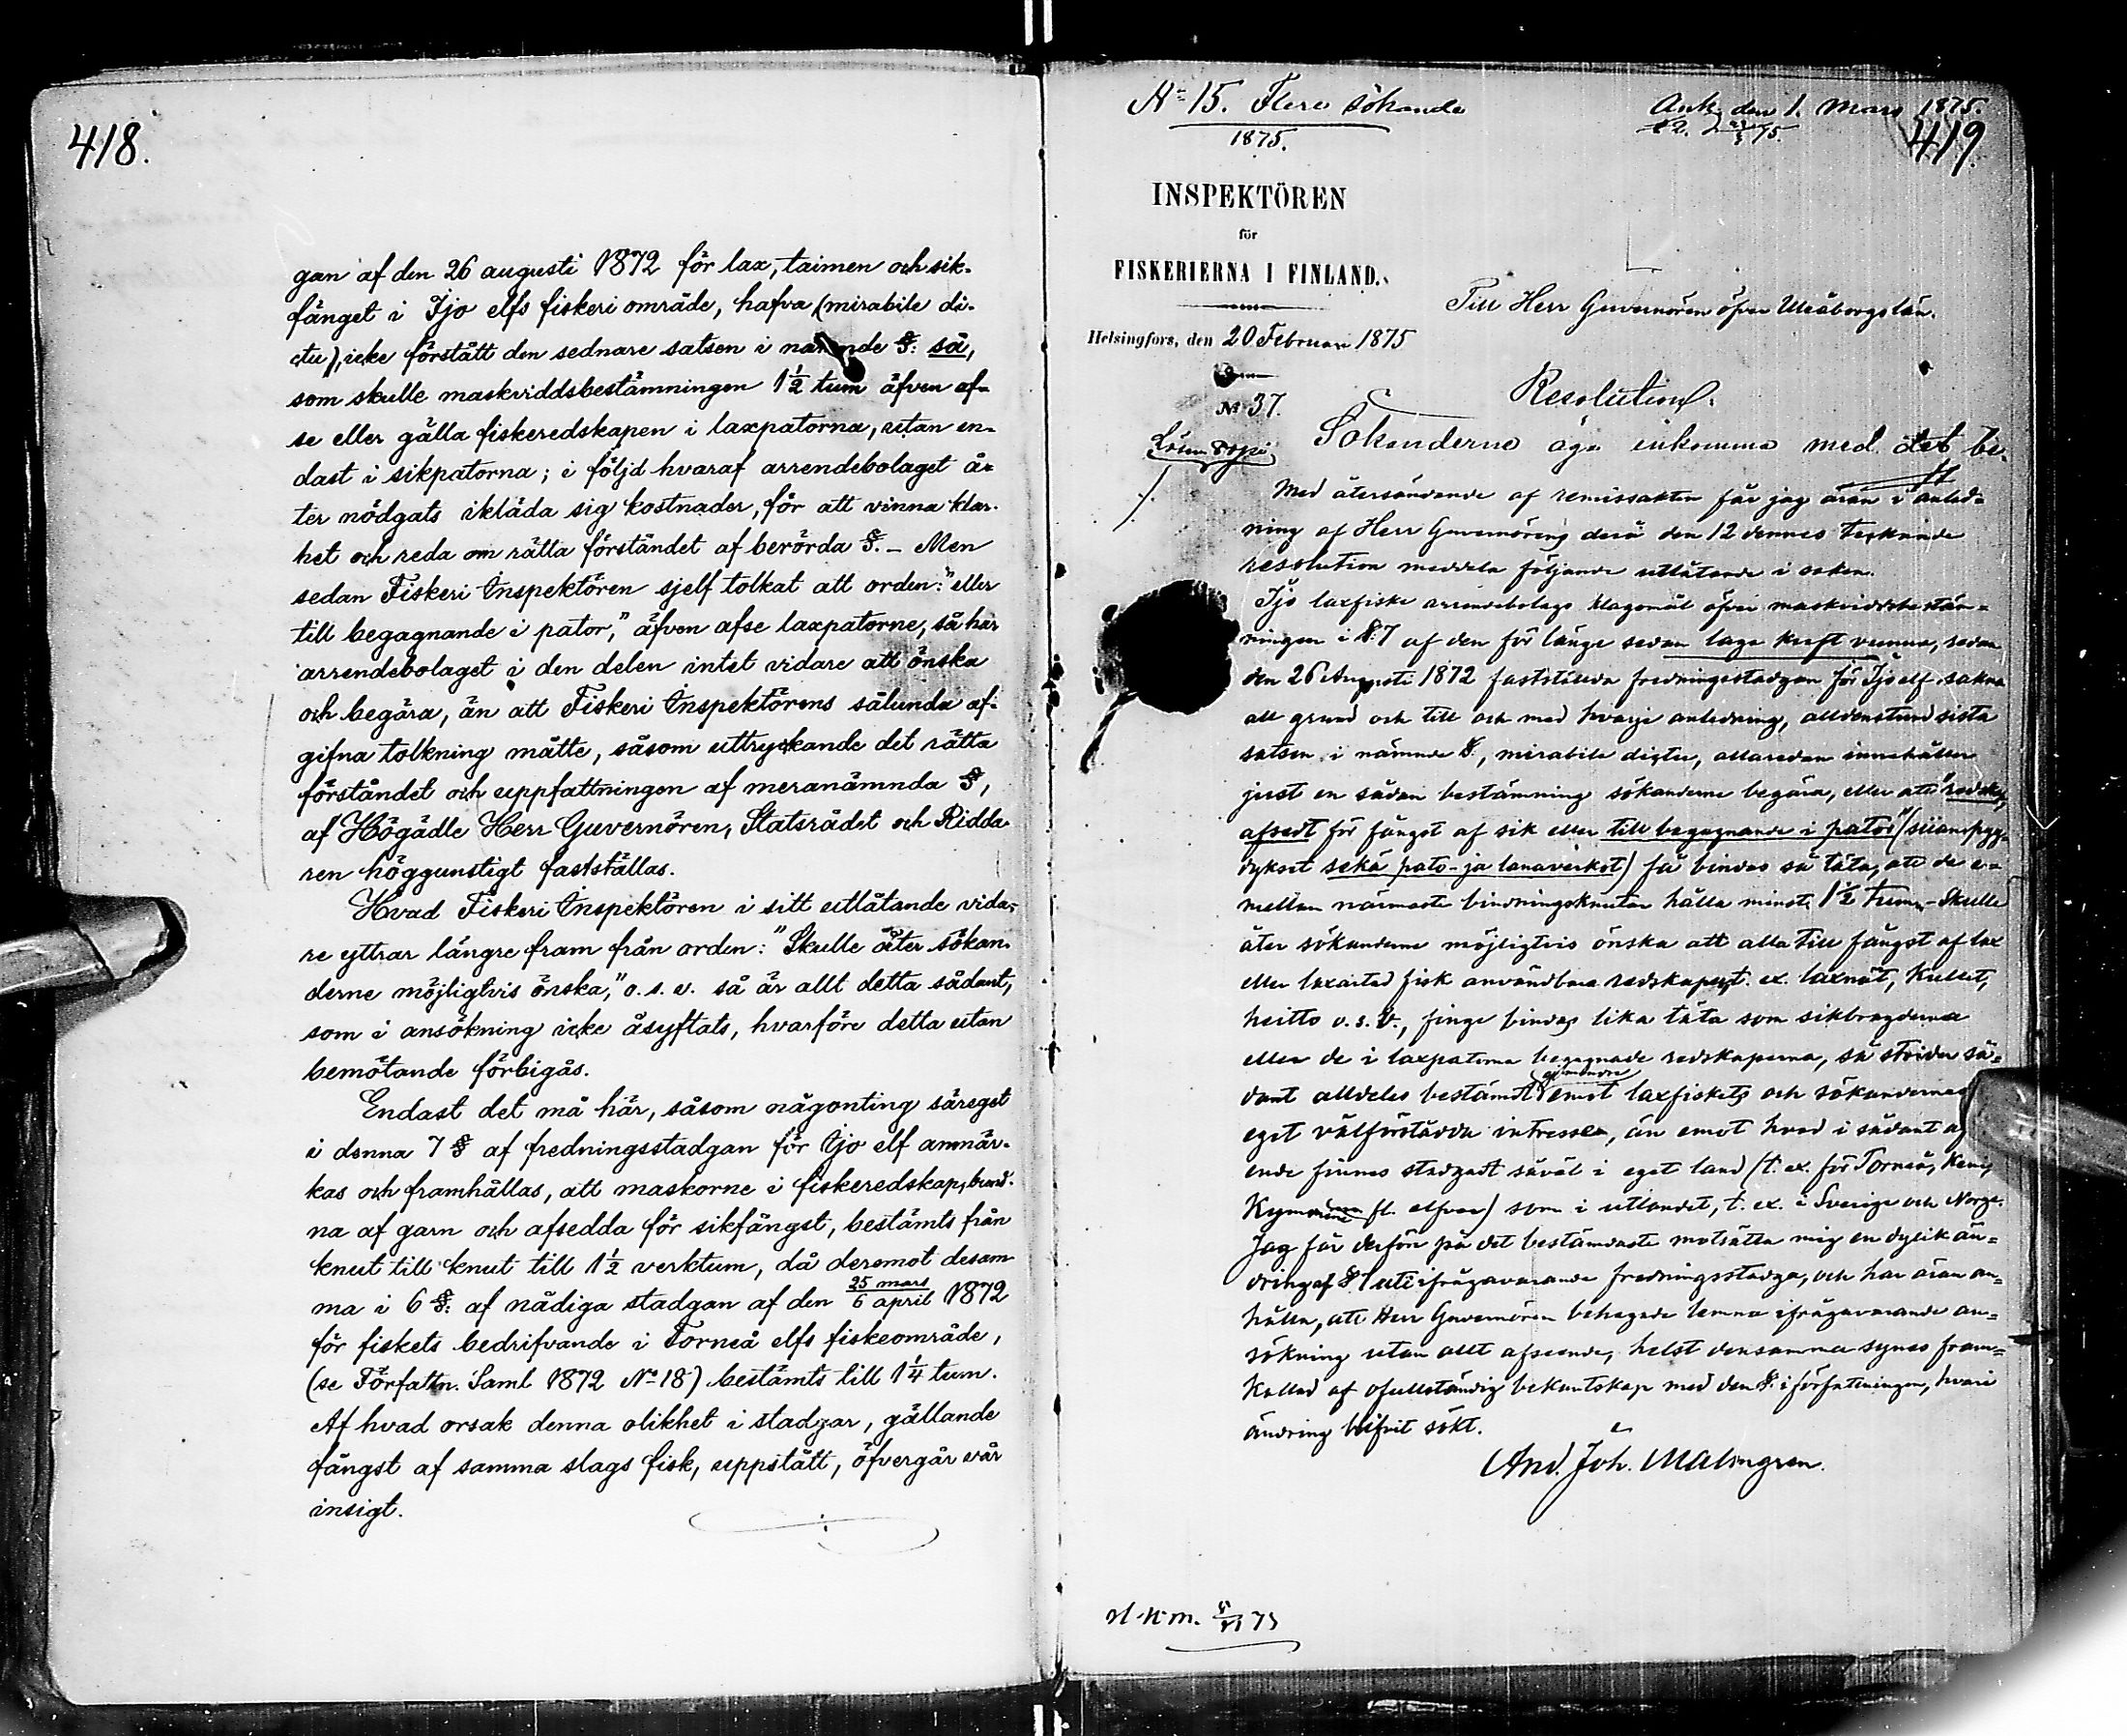 418.
gan af den 26 augusti 1872 för lax, taimen och sik-
fånget i Ijo elfs fiskeri område, hafva (mirabile di-
ctu), icke förstått den sednare satsen i nämnde §: så,
som skulle maskviddsbestämningen 1½ tum äfven af-
se eller gälla fiskeredskapen i laxpatorna, utan en-
dast i sikpatorna; i följd hvaraf arrendebolaget å-
ter nödgats ikläda sig kostnader, för att vinna klar-
het och reda om rätta förståndet af berörda §. - Men
sedan Fiskeri Inspektören sjelf tolkat att orden: "eller
till begagnande i pator," äfven afse laxpatorne, så har
arrendebolaget i den delen intet vidare att önska
och begära, än att Fiskeri Inspektörens sålunda af-
gifna tolkning måtte, såsom uttryckande det rätta
förståndet och uppfattningen af meranämnda §,
af Högädle Herr Guvernören, Statsrådet och Ridda-
ren höggunstigt fastställas.
Hvad Fiskeri Inspektören i sitt utlåtande vida-
re yttrar längre fram från orden: "Skulle åter sökan-
derne möjligtvis önska," o. s. v. så är allt detta sådant,
som i ansökning icke åsyftats, hvarföre detta utan
bemötande förbigås.
Endast det må här, såsom någonting säreget
i denna 7 § af fredningsstadgan för Ijo elf anmär-
kas och framhållas, att maskorne i fiskeredskap, bund-
na af garn och afsedda för sikfångst, bestämts från
knut till knut till 1½ verktum, då deremot desam-
ma i 6 §: af nådiga stadgan af den 25 mars/6 april 1872
för fiskets bedrifvande i Torneå elfs fiskeområde,
(se Författn. Saml 1872 No 18) bestämts till 1¼ tum.
Af hvad orsak denna olikhet i stadgar, gällande
fångst af samma slags fisk, uppstått, öfvergår vår
insigt.
No 15. Flere sökande
1875.
Ank. den 1. Mars 1875.
419
INSPEKTÖREN
för
FISKERIERNA I FINLAND.
Helsingfors, den 20 Februari 1875
No 37.
Till Herr Guvernören öfver Uleåborgs län.
Resolution.
Sökanderne äga inkomma med det be-
Med återsändande af remissakten får jag äran i anled-
ning af Herr Guvernörens derå den 12 dennes tecknade
resolution meddela följande utlåtande i saken.
Ijo laxfiske arrendebolags klagomål öfver maskviddsbestäm-
ningen i §:7 af den för länge sedan laga kraft vunna, redan
den 26 Augusti 1872 fastställda fredningsstadgan för Ijo elf sakna
all grund och till och med hvarje anledning, alldenstund sista
satsen i nämnde §., mirabile dictu, allaredan innehåller
just en sådan bestämning sökanderne begära, eller att "redskap,
afsedt för fångst af sik eller till begagnande i pator" (siianpyy-
dykset sekä pato- ja lanaverkot) få bindas så täta, att de e-
mellan närmaste bindningsknutar hålla minst 1½ tum. - Skulle
åter sökanderne möjligtvis önska att alla till fångst af lax
eller laxartad fisk användbara redskaper, t. ex. laxnät, kullet,
heitto o. s. v., finge bindas lika täta som sikbragderna
eller de i laxpatorna begagnade redskaperna, så strider så-
dant alldeles bestämdt ej mindre emot laxfiskets och sökandernas
eget välförstådda intresse, än emot hvad i sådant a
ende finnes stadgadt såväl i eget land (t. ex. för Torneå, Kemi,
Kymmene fl. elfvar) som i utlandet, t. ex. i Sverige och Norge.
Jag får derföre på det bestämdaste motsätta mig en dylik än-
dring af § 7 uti ifrågavarande fredningsstadga, och har äran an-
hålla, att Herr Guvernören behagade lemna ifrågavarande an-
sökning utan allt afseende, helst densamma synes fram-
kallad af ofullständig bekantskap med den §. i författningen, hvari
ändring blifvit sökt.
And. Joh. Malmgren.